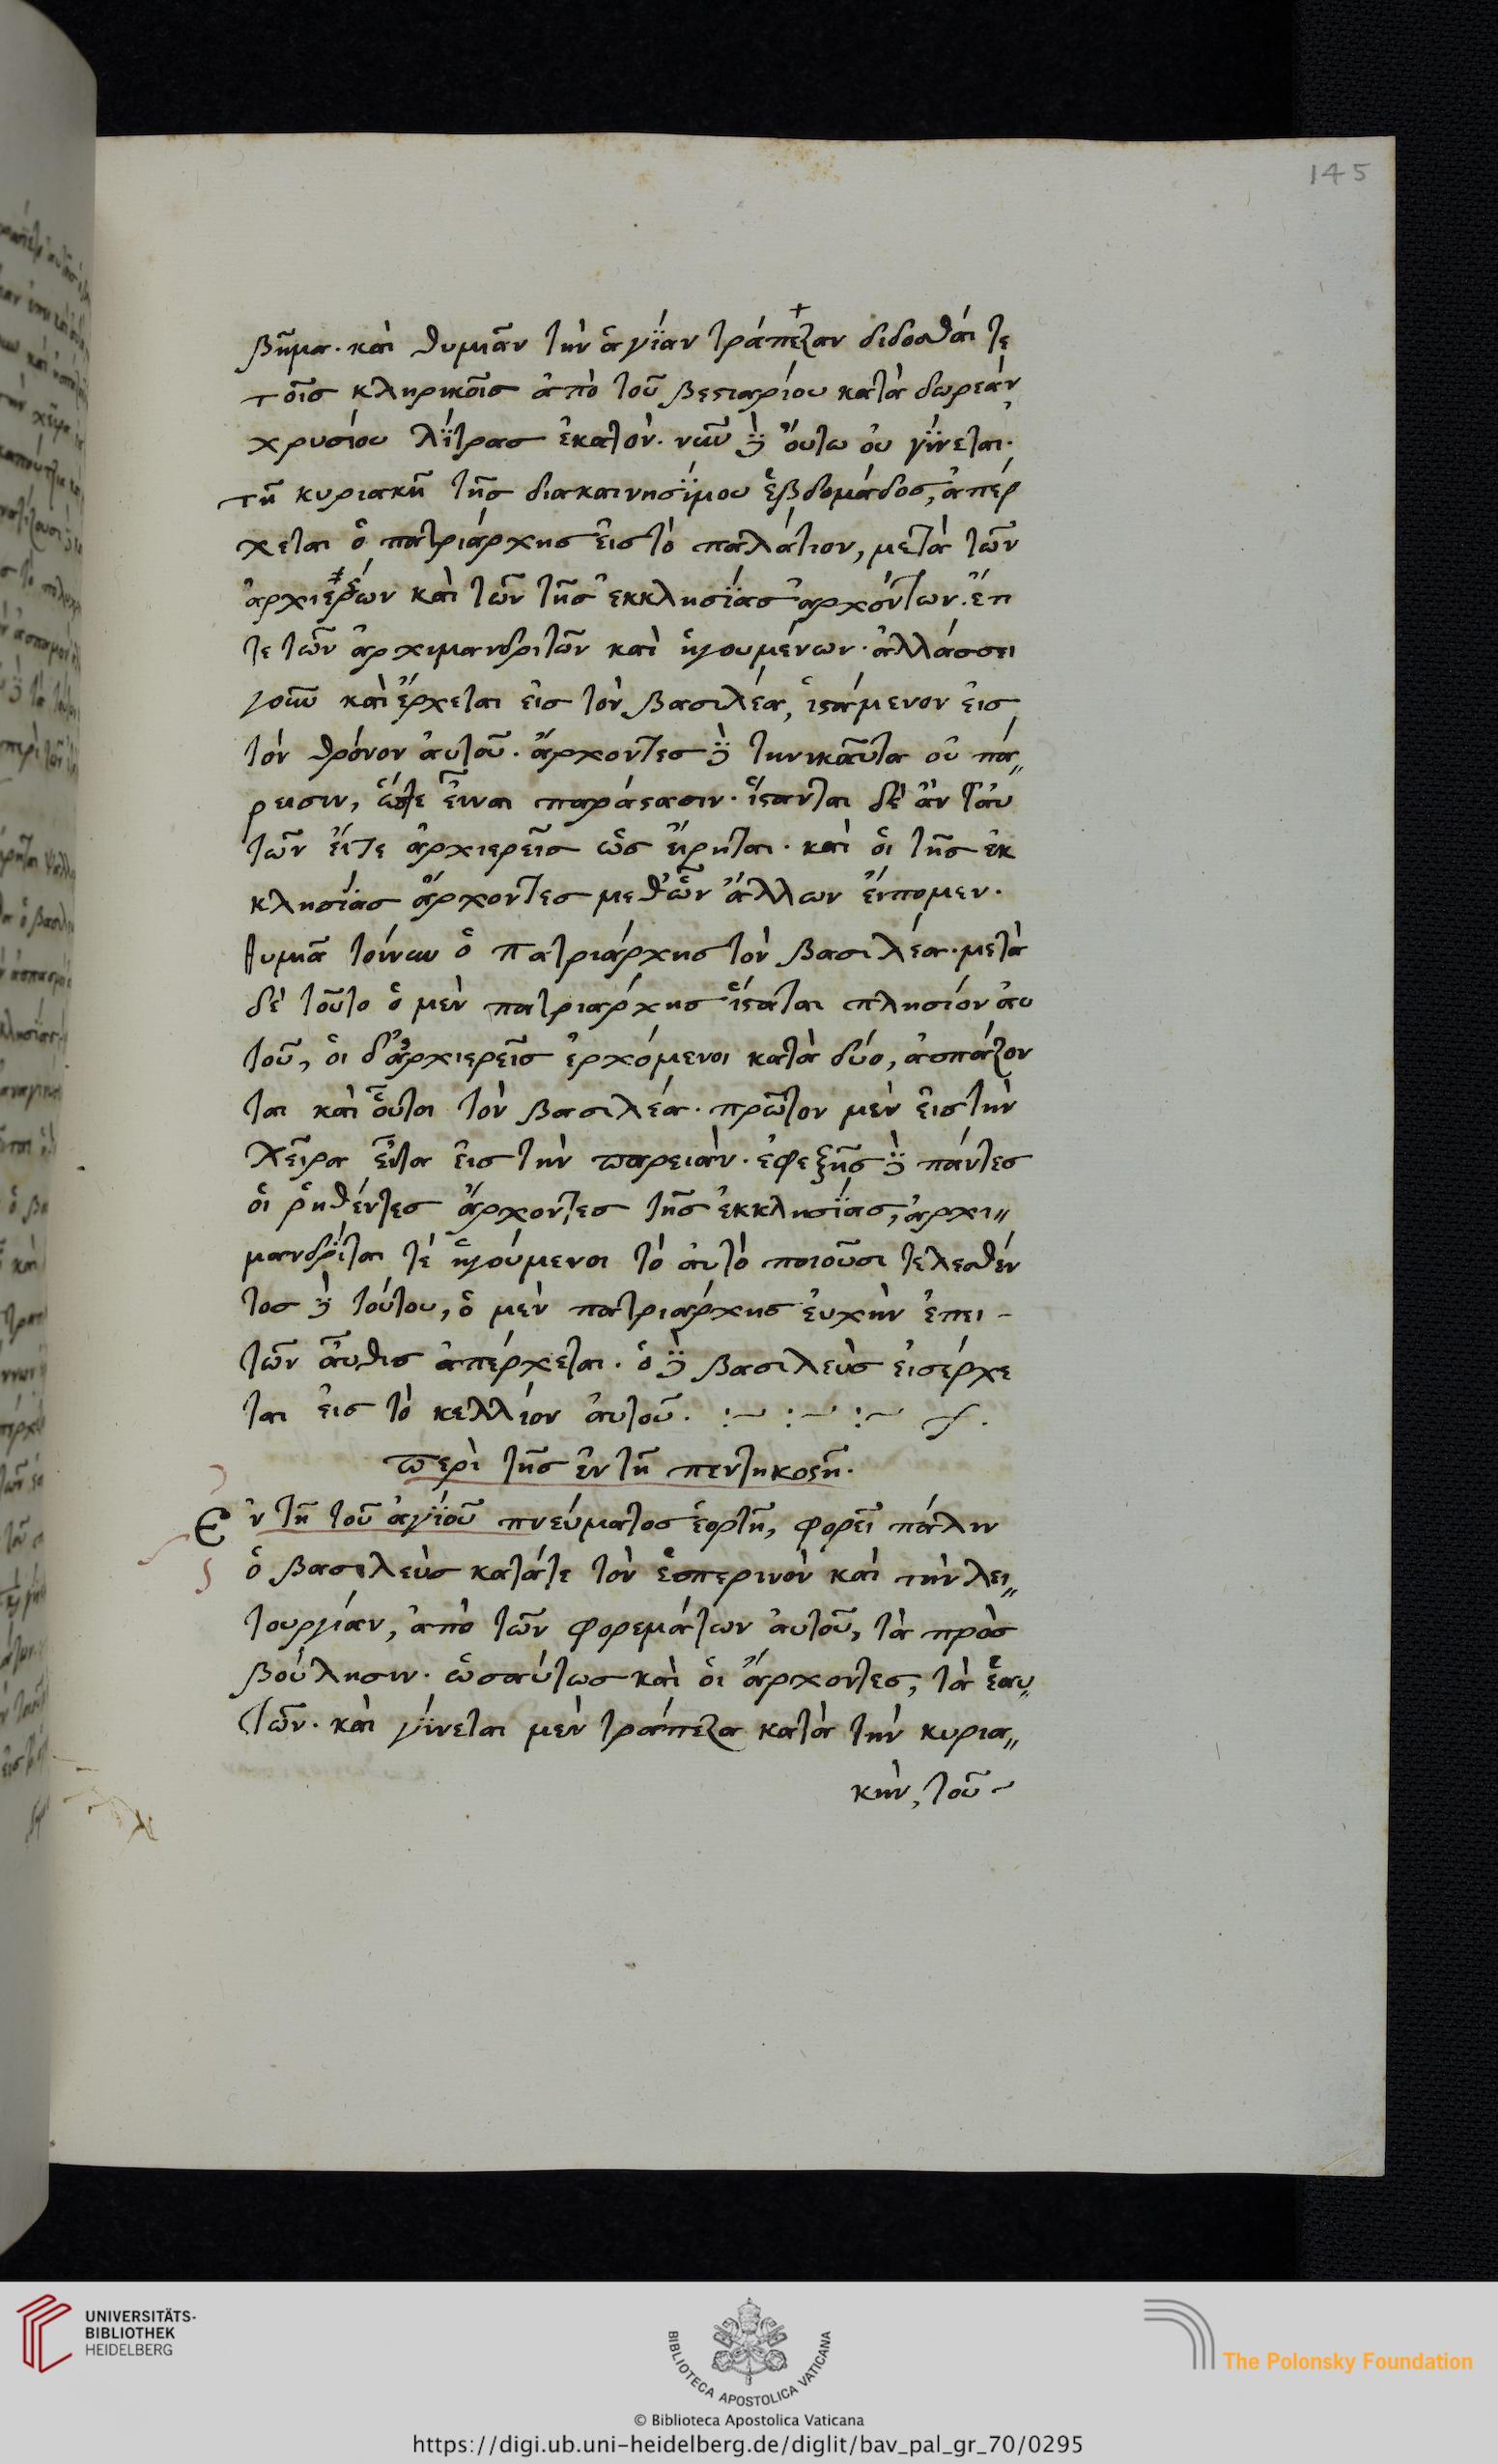 145
βῆμα· καὶ θυμιᾶν τὴν ἁγίαν τράπεζαν δίδοσθαί τε
τοῖς κληρικοῖς ἀπὸ τοῦ βεστιαρίου κατὰ δωρεὰν
χρυσίου λίτρας ἑκατόν. νῦν δὲ οὕτω οὐ γίνεται·
τῆ κυριακῆ τῆς διακαινησίμου ἑβδομάδος, ἀπέρ
χεται ὁ πατριάρχης εἰς τὸ παλάτιον, μετὰ τῶν
ἀρχιερέων καὶ τῶν τῆς ἐκκλησίας ἀρχόντων. ἔτι
τε τῶν ἀρχιμανδριτῶν καὶ ἡγουμένων. ἀλλάσσει
γοῦν καὶ ἔρχεται εἰς τὸν βασιλέα, ἱστάμενον εἰς
τὸν θρόνον αὐτοῦ. ἄρχοντες δὲ τηνικαῦτα οὐ πά〃
ρεισιν, ὥστε εἶναι παράστασιν. ἵστανται δὲ ἀν ταυ
τῶν εἴτε ἀρχιερεῖς ὡς εἴρηται. καὶ οἱ τῆς ἐκ
κλησίας ἄρχοντες μεθ' ὧν ἄλλων εἴπομεν.
θυμιᾶ τοίνυν ὁ πατριάρχης τὸν βασιλέα. μετὰ
δὲ τοῦτο ὁ μὲν πατριάρχης ἵσταται πλησίον αὐ
τοῦ, οἱ δ' ἀρχιερεῖς ἐρχόμενοι κατὰ δύο, ἀσπάζον
ται καὶ οὗτοι τὸν βασιλέα. πρῶτον μὲν εἰς τὴν
χεῖρα εἶτα εἰς τὴν παρειάν. ἐφεξῆς δὲ πάντες
οἱ ῥηθέντες ἄρχοντες τῆς ἐκκλησίας, ἀρχι〃
μανδρίται τέ ἡγούμενοι τὸ αὐτὸ ποιοῦσι τελεσθέν
τος δὲ τούτου, ὁ μὲν πατριάρχης εὐχὴν ἐπει-
πὼν αὖθις ἀπέρχεται. ὁ δὲ βασιλεὺς εἰσέρχε
ται εἰς τὸ κελλίον αὐτοῦ. :~ :~ :~
περὶ τῆς ἐν τῆ πεντηκοστῆ.
Ἐν τῆ τοῦ ἁγίου πνεύματος ἑορτῆ, φορεῖ πάλιν
ὁ βασιλεὺς κατάτε τὸν ἑσπερινὸν καὶ τὴν λει〃
τουργίαν, ἀπὸ τῶν φορεμάτων αὐτοῦ, τὰ πρὸς
βούλησιν. ὡσαύτως καὶ οἱ ἄρχοντες, τὰ ἑαυ〃
τῶν. καὶ γίνεται μὲν τράπεζα κατὰ τὴν κυρια〃
κὴν, τοῦ ~
UNIVERSITÄTS-
BIBLIOTHEK
HEIDELBERG
BIBLIOTECA APOSTOLICA VATICANA
The Polonsky Foundation
© Biblioteca Apostolica Vaticana
https://digi.ub.uni-heidelberg.de/diglit/bav_pal_gr_70/0295